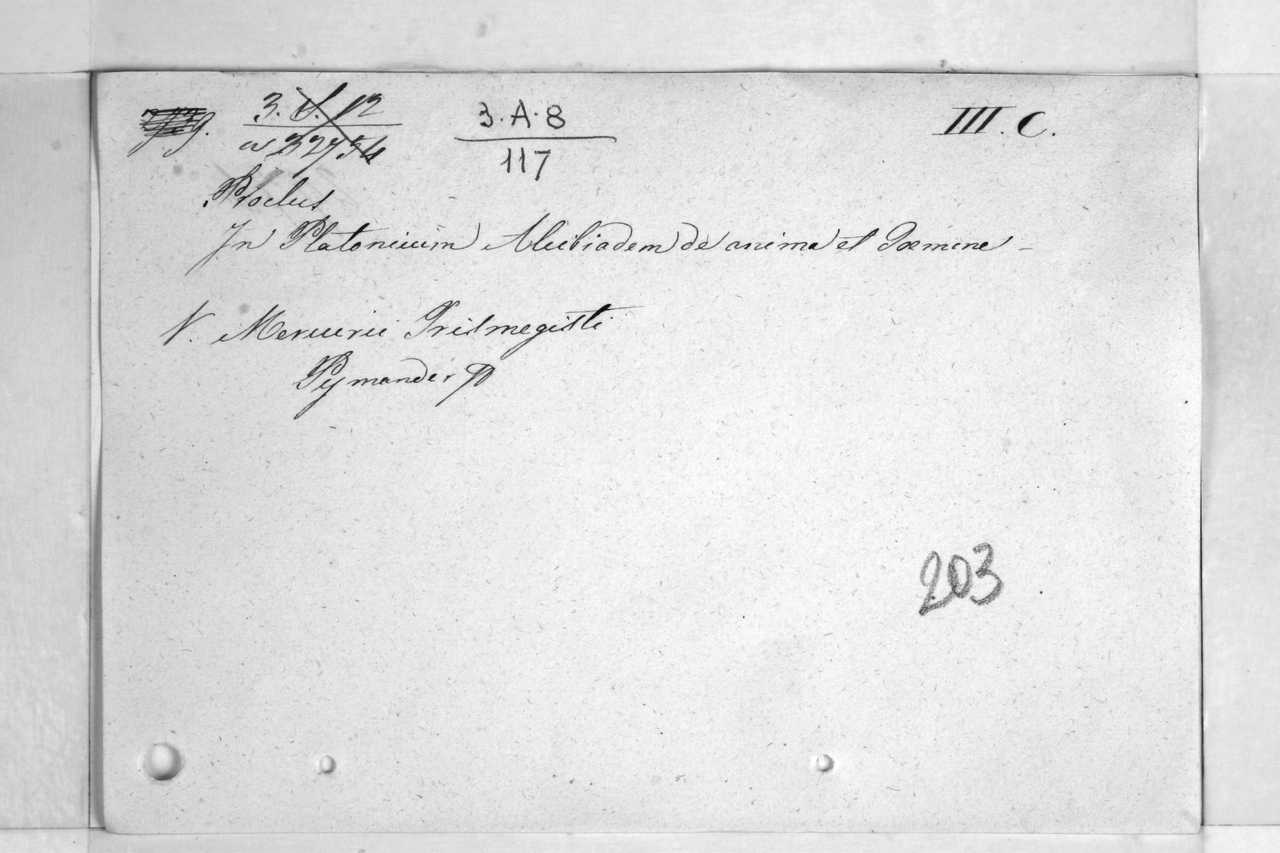 3. A. 8
117
III. C.
Proclus
In Platonicum Alcibiadem de anima et Dæmone
V. Mercurii Trismegisti
Pymander
203